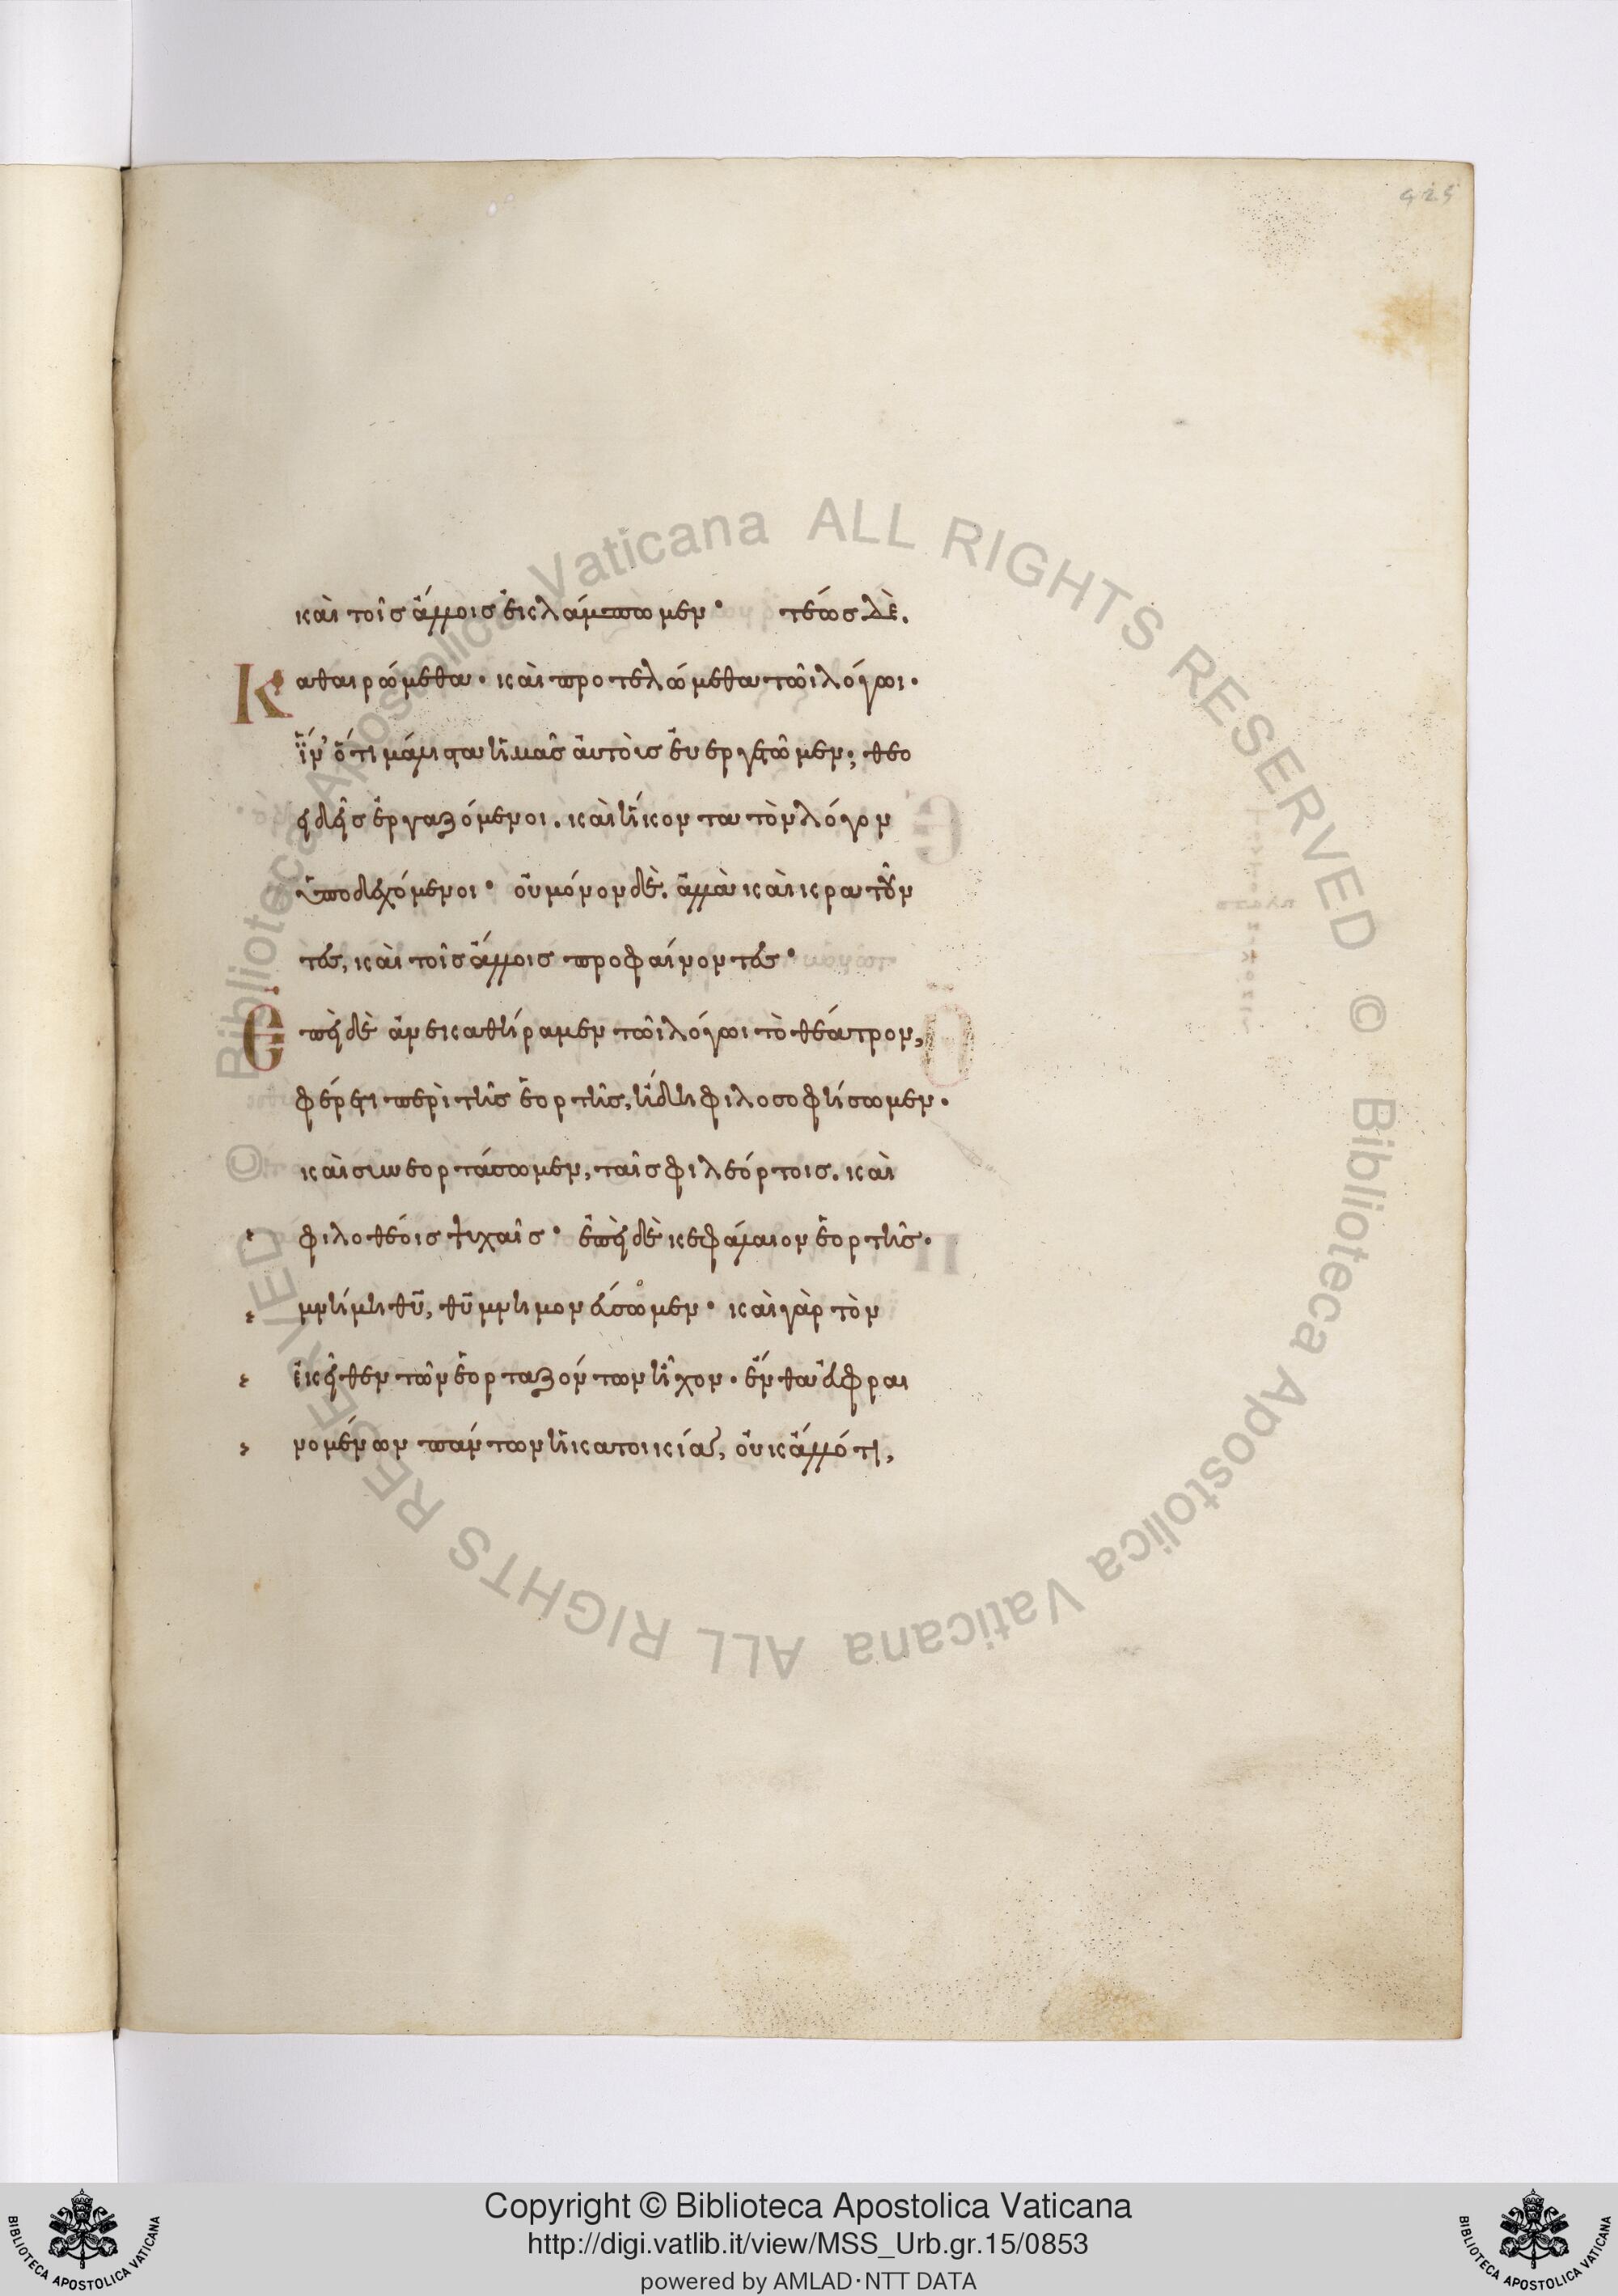 425
καὶ τοῖς ἄλλοις ἐκλάμπωμεν· τέως δὲ.
Καθαιρώμεθα· καὶ προτελώμεθα τῶι λόγωι·
ἵν' ὅτι μάλιστα ἡμᾶς ἀυτὸυς ἐυεργετῶμεν; θεο
ειδεῖς ἐργαζόμενοι. καὶ ἥκοντα τὸν λόγον
ὑποδεχόμενοι· οὐ μόνον δὲ. ἀλλὰ καὶ κρατοῦν
τες, καὶ τοῖς ἄλλοις προφαίνοντες·
Ἐπεὶ δὲ ἀνεκαθήραμεν τῶι λόγωι τὸ θέατρον,
φέρέ τι περὶ τῆς ἑορτῆς, ἤδη φιλοσοφήσωμεν.
καὶ συνεορτάσωμεν, ταῖς φιλεόρτοις. καὶ
φιλοθέοις ψυχαῖς· ἐπεὶ δὲ κεφάλαιον ἑορτῆς.
μνήμη θυ, θυ μνημονεύσωμεν· καὶ γὰρ τὸν
ἐκεῖθεν τῶν ἑορταζόντων ἦχον. ἔνθα ἐυφραι
νομένων πάντων ἡ κατοικία, οὐκ ἄλλό τι,
Copyright © Biblioteca Apostolica Vaticana
http://digi.vatlib.it/view/MSS_Urb.gr.15/0853
powered by AMLAD·NTT DATA
BIBLIOTECA APOSTOLICA VATICANA
BIBLIOTECA APOSTOLICA VATICANA
© Biblioteca Apostolica Vaticana ALL RIGHTS RESERVED
© Biblioteca Apostolica Vaticana ALL RIGHTS RESERVED